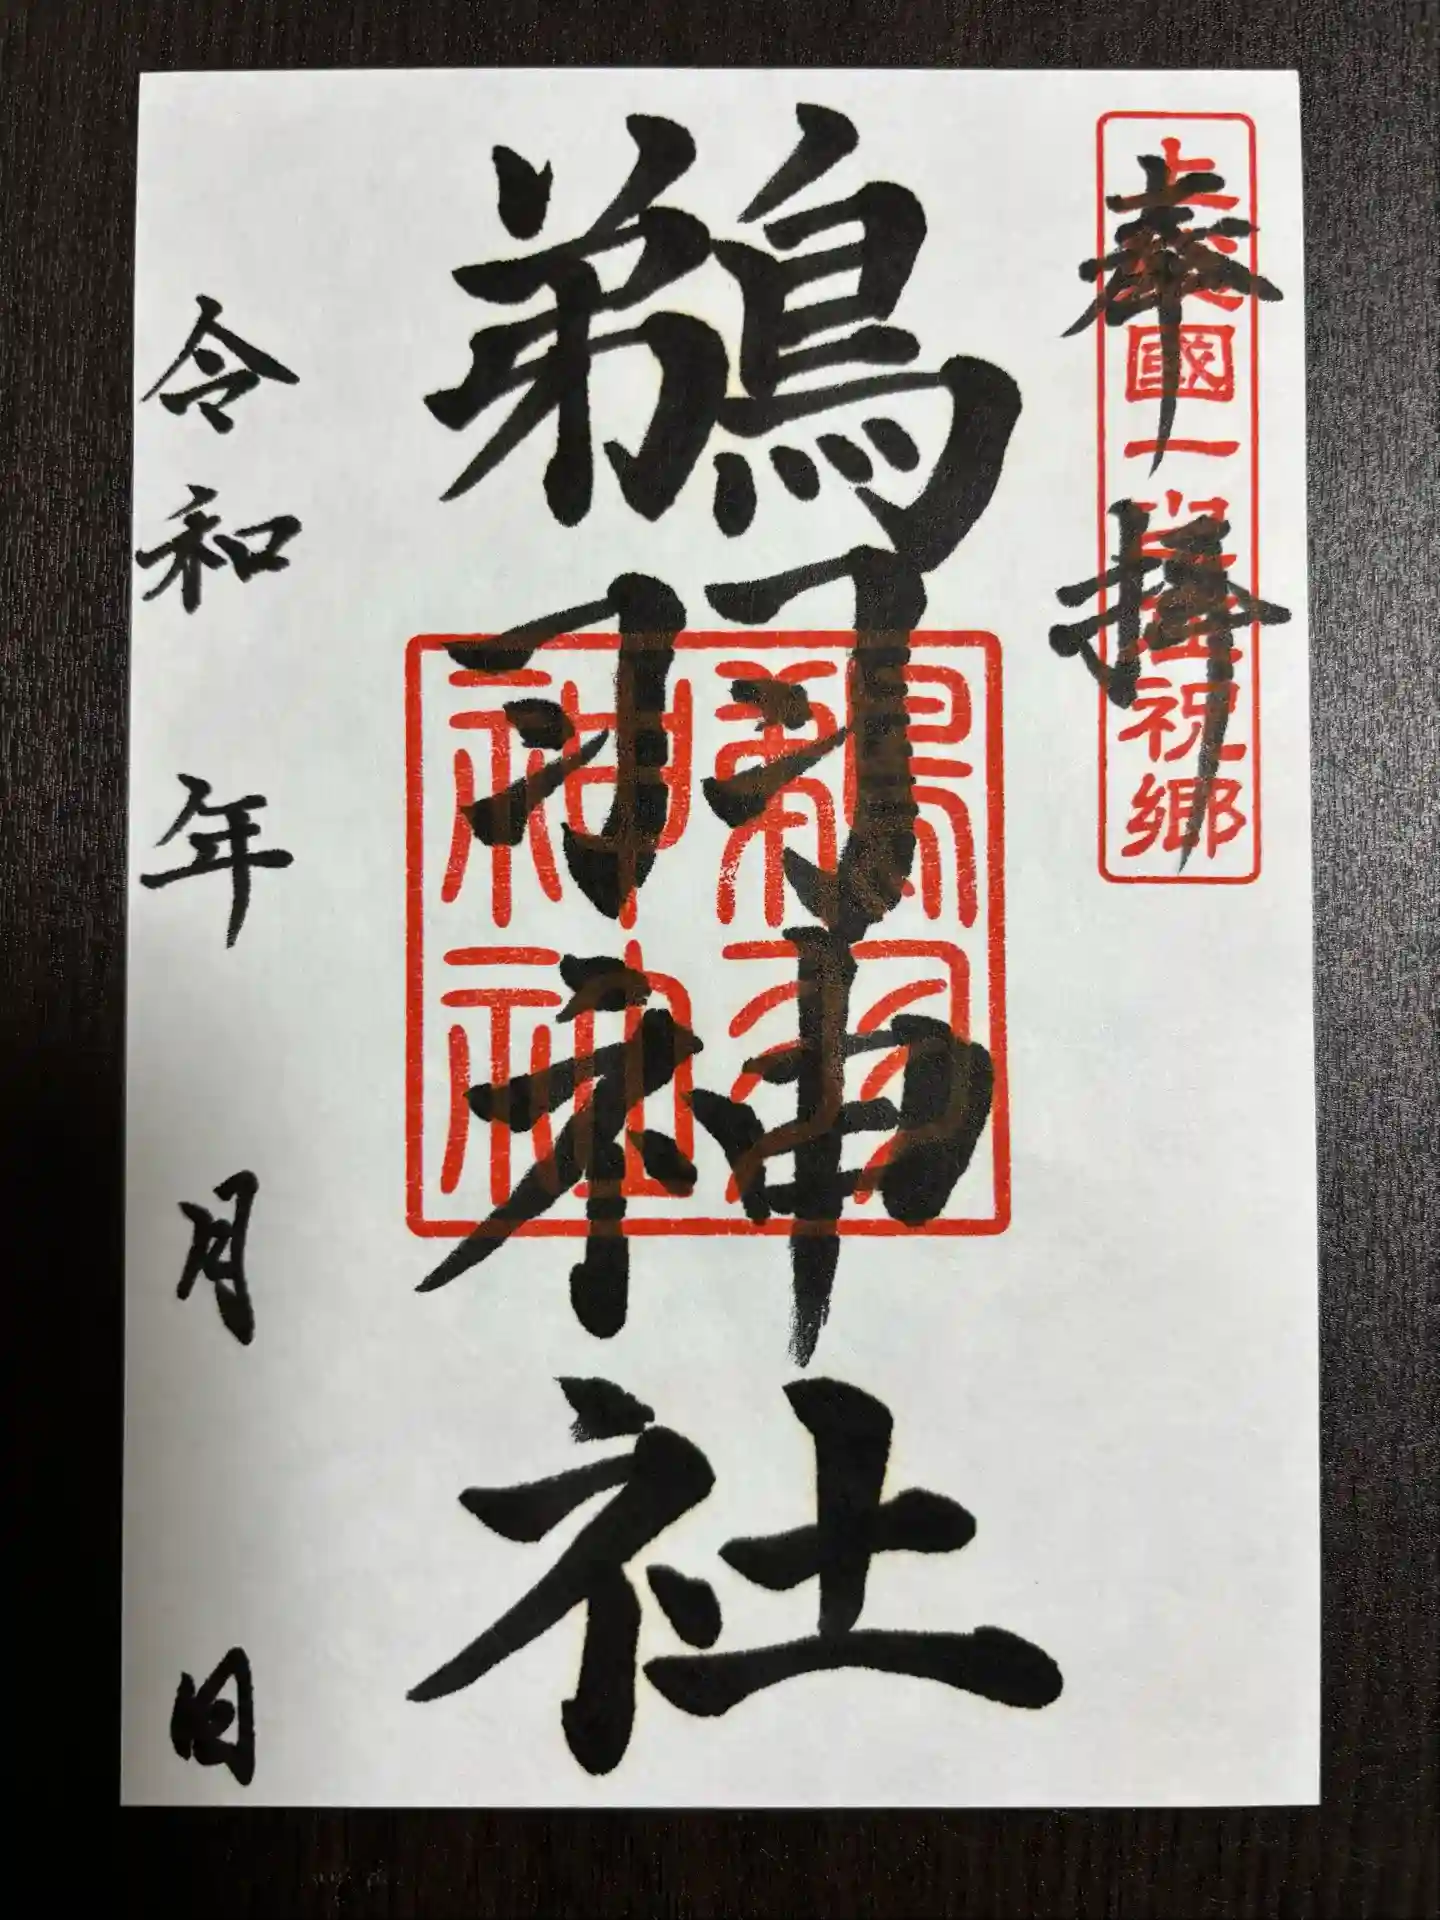 奉拝
上総國一
祝郷
鵜羽神社
鵜羽
神社
令和 年 月 日